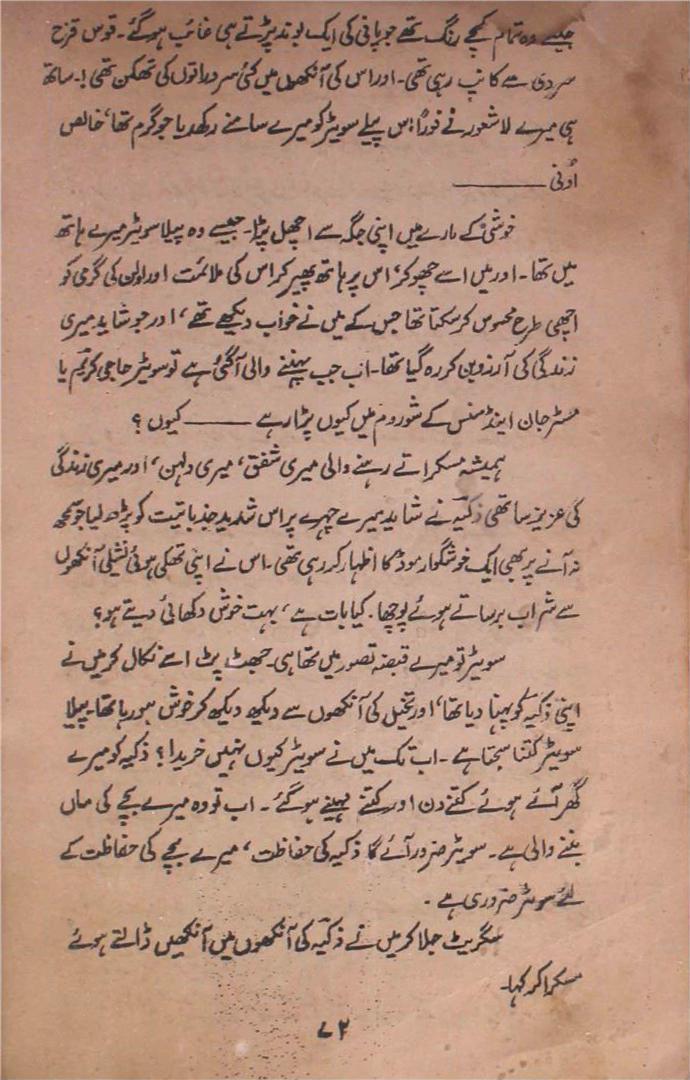 جیسے وہ تمام کچے رنگ تھے جو پانی کی ایک بوند پڑتے ہی غائب ہو گئے۔ قوس قزح
سردی سے کانپ رہی تھی۔ اور اس کی آنکھوں میں کئی سرد راتوں کی تھکن تھی!۔ ساتھ
ہی میرے لاشعور نے فوراً اس پیلے سویٹر کو میرے سامنے رکھ دیا جو گرم تھا، خالص
اُونی ———
خوشی کے مارے میں اپنی جگہ سے اچھل پڑا۔ جیسے وہ پیلا سویٹر میرے ہاتھ
میں تھا۔ اور میں اسے چھو کر، اس پر ہاتھ پھیر کر اس کی ملائمت اور اون کی گرمی کو
اچھی طرح محسوس کر سکتا تھا جس کے میں نے خواب دیکھے تھے، اور جو شاید میری
زندگی کی آرزو بن کر رہ گیا تھا۔ اب جب پہننے والی آ گئی ہے تو سویٹر حاجی کریم یا
مسٹر جان اینڈ سنس کے شو روم میں کیوں پڑا رہے ——— کیوں ؟
ہمیشہ مسکراتے رہنے والی میری شفق، میری دلہن، اور میری زندگی
کی عزیز ساتھی ذکیہ نے شاید میرے چہرے پر اس شدید جذباتیت کو پڑھ لیا جو سمجھ
نہ آنے پر بھی ایک خوشگوار موڈ کا اظہار کر رہی تھی۔ اس نے اپنی تھکی ہوئی نشیلی آنکھوں
سے شراب برساتے ہوئے پوچھا۔ کیا بات ہے، بہت خوش دکھائی دیتے ہو؟
سویٹر تو میرے قبضہ تصور میں تھا ہی۔ جھٹ پٹ اسے نکال کر میں نے
اپنی ذکیہ کو پہنا دیا تھا، اور تخیل کی آنکھوں سے دیکھ دیکھ کر خوش ہو رہا تھا۔ پیلا
سویٹر کتنا سجتا ہے۔ اب تک میں نے سویٹر کیوں نہیں خریدا؟ ذکیہ کو میرے
گھر آئے ہوئے کتنے دن اور کتنے مہینے ہو گئے۔ اب تو وہ میرے بچے کی ماں
بننے والی ہے۔ سویٹر ضرور آئے گا ذکیہ کی حفاظت، میرے بچے کی حفاظت کے
لئے سویٹر ضروری ہے۔
سگریٹ جلا کر میں نے ذکیہ کی آنکھوں میں آنکھیں ڈالتے ہوئے
مسکرا کر کہا۔
۷۲